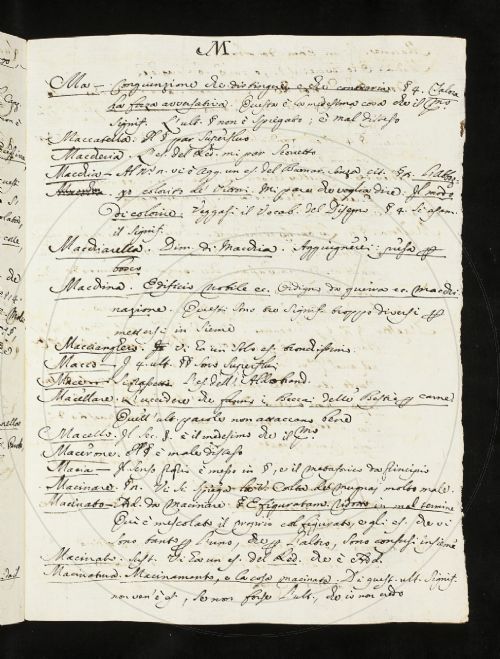 M
Ma — Congiunzione che distingue, e che contraria § 4. Talora
ha forza avversativa. Questa è la medesima cosa che il pmo
Signif. L'ult. § non è spiegato; e mal disteso
Maccatella. Il § par Superfluo
Maccheria. L'es. del Red. mi par Scorretto
Macchia — Al N. n. vi è Agg. un es. del senza cit.
colorito de' Mi pare che voglia dire Il modo
di colorire. Veggasi il Vocab. del Disegno. § 4. Si
il Signif.
Macchiarella. Dim. di Macchia. Aggiugnerei: presa per
bosco
Macchina. Edifizio Nobile ec. Ordigno da guerra ec. Macchi-
nazione. Questi sono tre Signif. troppo diversi per
mettersi in sieme
Macchianghero. Vi era un solo es.
Macco — I 4. ult. §§ sono Superflui
L'es. dell' Allegr.
Macellare. L'uccidere che fanno i beccai delle bestie per carne
Quell'ult. parole non attaccano bene
Macello. Il Sec. §. è il medesimo che il pmo
Macerme. Il § è male disteso
Macia — Il senso proprio è messo in §, e il metaforico da principio
Macinare. §n. Vi si spiega molto male.
Macinato — Ad. da Macinare § E figuratam. in mal termine
Qui è mescolato il proprio col figurato, e gli es. che vi
Sono tanto per l'uno, che per l'altro, sono confusi insieme
Macinato. Sust. Vi era un es. del Red. che è Add.
Macinatura. Macinamento, e la cosa macinata. Di quest. ult. Signif.
non ven'è es., se non forse l'ult., che io non credo